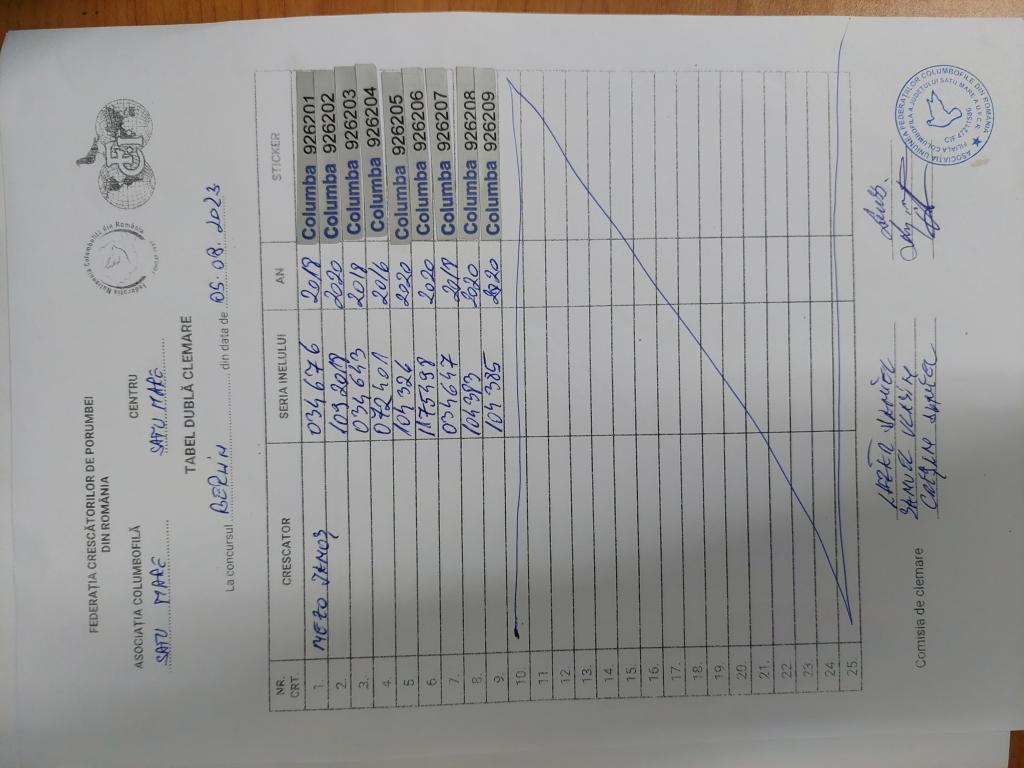 FEDERAȚIA CRESCĂTORILOR DE PORUMBEI
DIN ROMÂNIA
Federația Națională Columbofilă din România
FCPR
ASOCIAȚIA COLUMBOFILĂ
CENTRU
SATU MARE
SATU MARE
TABEL DUBLĂ CLEMARE
La concursul BERLIN din data de 05.08.2023
NR. CRT. CRESCATOR SERIA INELULUI AN STICKER
1. MEZO JANOS 034676 2018 Columba 926201
2. 1092018 2020 Columba 926202
3. 034643 2018 Columba 926203
4. 072401 2016 Columba 926204
5. 104326 2020 Columba 926205
6. 1175498 2020 Columba 926206
7. 034647 2018 Columba 926207
8. 104393 2020 Columba 926208
9. 104385 2020 Columba 926209
10.
11.
12.
13.
14.
15.
16.
17.
18.
19.
20.
21.
22.
23.
24.
25.
Comisia de clemare
DANIEL
SAMUEL
ASOCIAȚIA UNIUNEA FEDERAȚIILOR COLUMBOFILE DIN ROMANIA
FILIALA COLUMBOFILA A JUDETULUI SATU MARE A U.F.C.R.
CIF 47211596